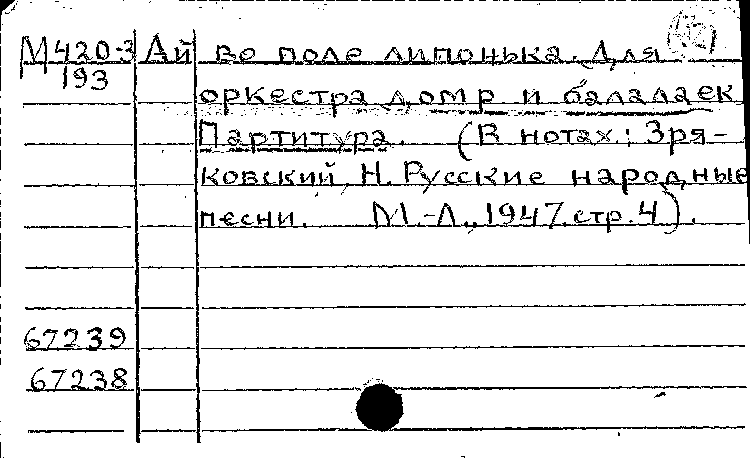 М420-3 Ай во поле липонька. Для
193
оркестра домр и балалаек
Партитура. (В нотах: Зря-
ковский, Н. Русские народные
песни. М.-Л., 1947. стр. 4).
67239
67238